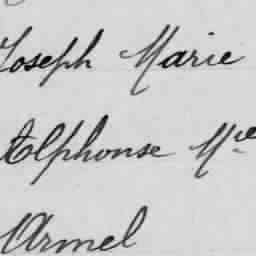 Joseph Marie
Alphonse Mie
Armel